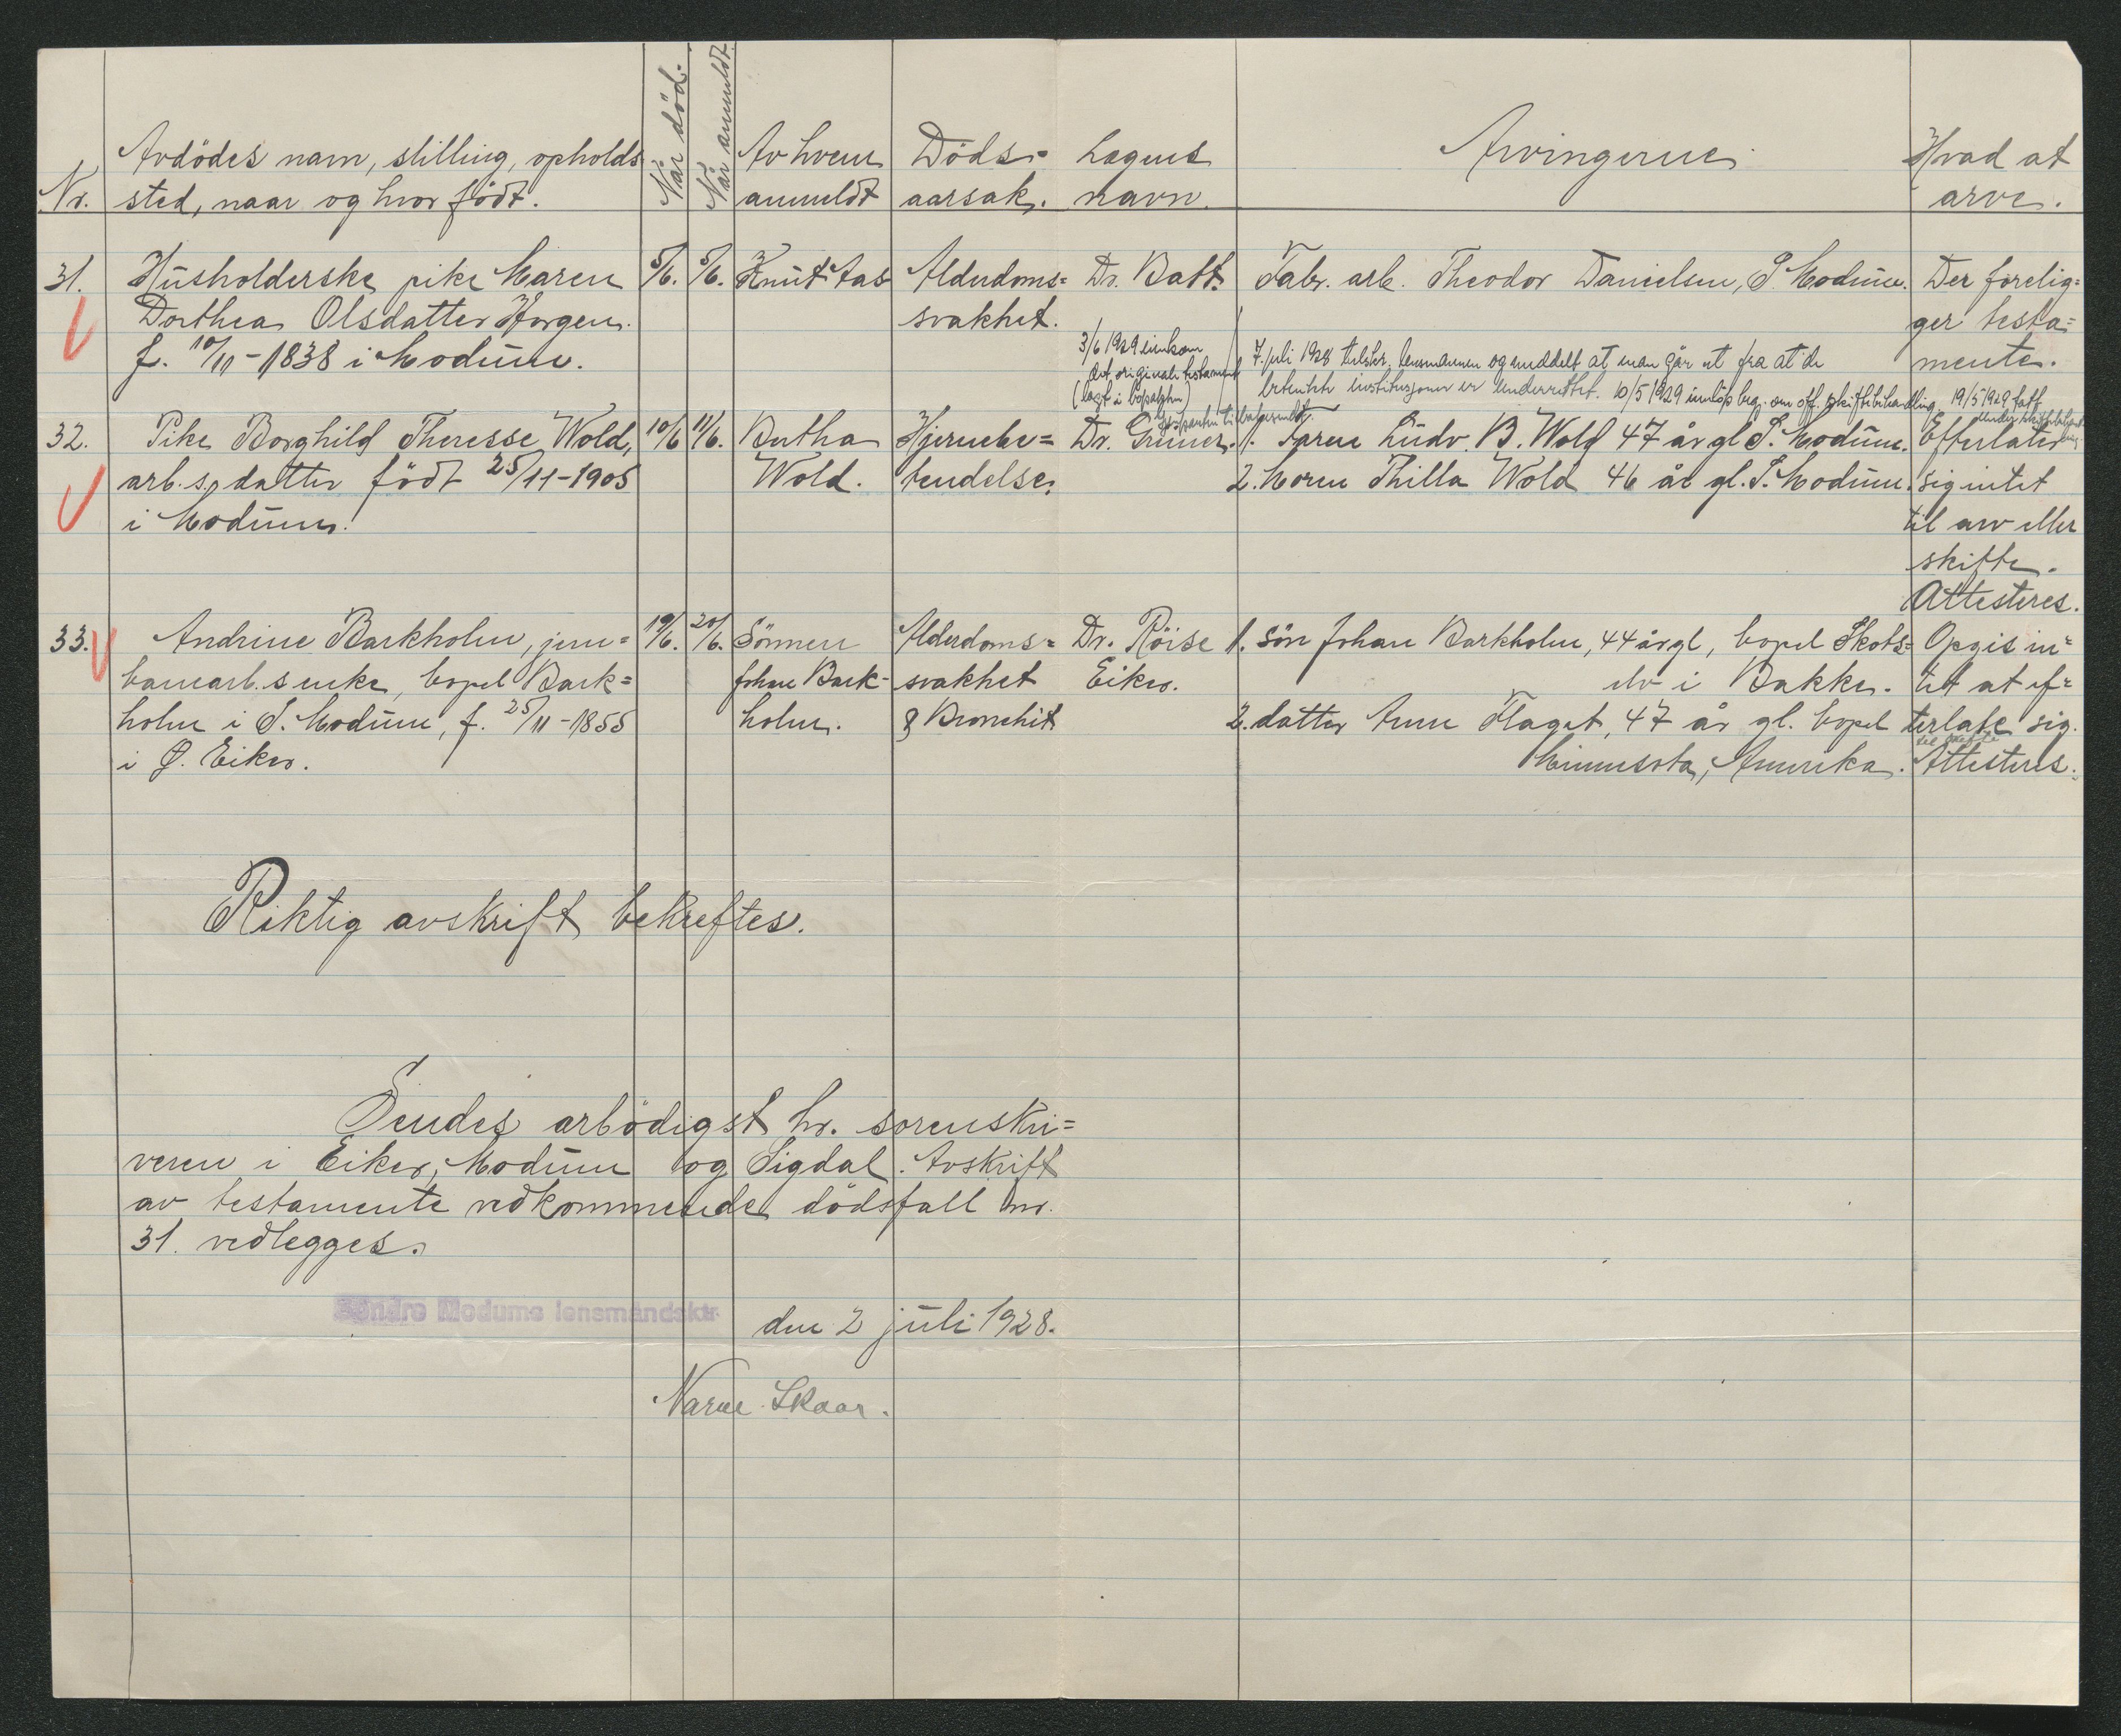 Nr.
Avdödes navn, stilling, opholds
sted, naar og hvor födt.
Når död.
Når anmeldt.
Av hvem
anmeldt
Döds-
aarsak.
Lægens
navn.
Arvingerne
Hvad at
arve.
31.
Husholderske, pike Maren
Dorthea Olsdatter Horgen.
f. 10/11-1838 i Modum.
5/6.
5/6.
Knut Aas
Alderdoms=
svakhet.
Dr. Batt.
Fabr. arb. Theodor Danielsen, S. Modum.
Der forelig=
ger testa=
mente.
3/6 1929 innkom
det originale testament
(lagt i
7. juli 1928 tilskr. lensmannen og meddelt at man går ut fra at de
institusjoner er underrettet. 10/5 1929 innløp beg. om off. skiftebehandling. 19/5 1929 tatt
32.
Pike Borghild Theresse Wold,
arb.s. datter födt 25/11-1905
i Modum.
10/6
11/6.
Bertha
Wold.
Hjernebe=
tendelse.
Dr. Grüner.
1. Faren Ludv. B. Wold 47 år gl S. Modum.
2. Moren Thilla Wold 46 år gl. S. Modum.
Efterlater
sig intet
til arv eller
skifte.
Attesteres.
33.
Andrine Barkholm, jern=
banearb.s enke, bopel Bark=
holm i S. Modum, f. 25/11-1855
i Ø. Eiker.
19/6.
20/6.
Sönnen
Johan Bark-
holm.
Alderdoms=
svakhet
& Bronchit
Dr. Röise
Eiker.
1. sön Johan Barkholm, 44 år gl, bopel Skots=
elv i Bakke.
2. datter Anne Flaget, 47 år gl. bopel
Minnesota, Amerika.
Opgis in=
tet at ef=
terlate sig.
til skifte
Attesteres.
Riktig avskrift bekreftes.
Sendes arbödigst hr. sorenskri=
veren i Eiker, Modum og Sigdal. Avskrift
av testamente vedkommende dödsfall nr.
31. vedlegges.
Söndre Modums lensmandsktr.
den 2 juli 1928.
Narve Skaar.